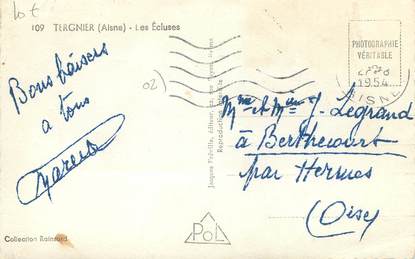 lot
109 TERGNIER (Aisne) - Les Écluses
PHOTOGRAPHIE
VÉRITABLE
1954
AISNE
02)
Bons baisers
a tous
Marcel
Mme & Mr J. Legrand
à Berthecourt
par Hermes
(Oise)
Reproduction interdite
POL
Collection Rainsard